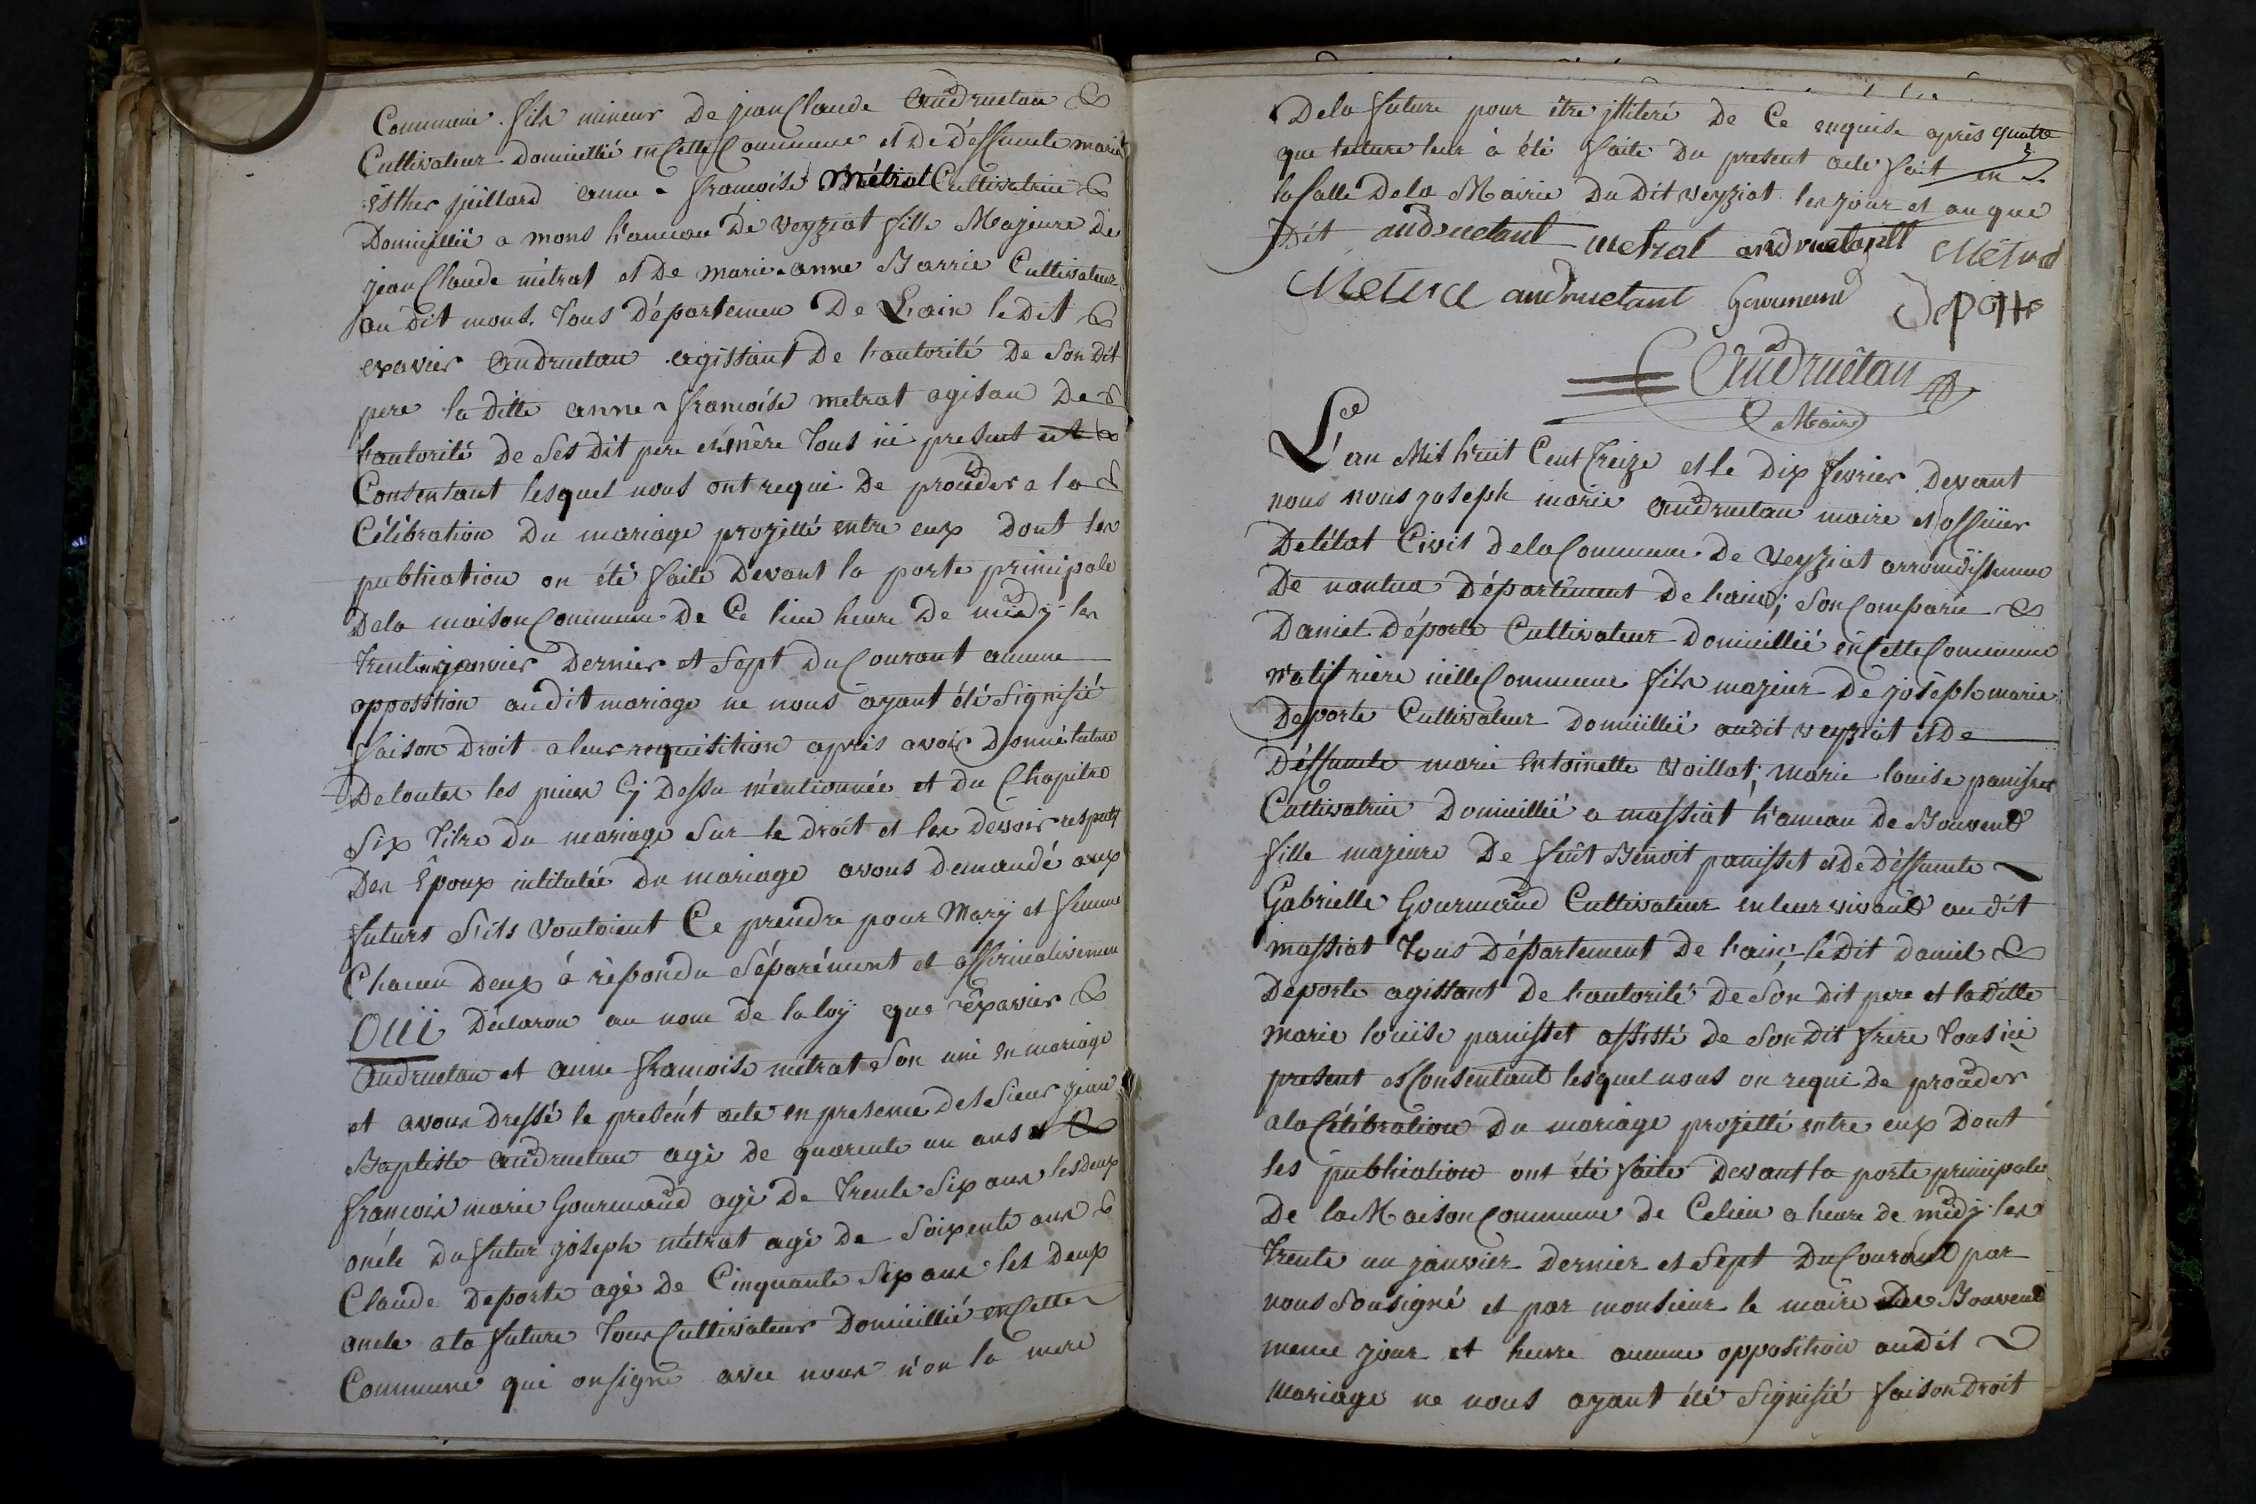 Commune fils mineur De jean Claude Audructan
Cultivateur domicillié en Cette Commune et De Déffunte marie
esther juillard anne - francoise Métrat Cultivatrice
Domicillié a mons h'amau De veyziat fille Majeure De
jean Claude métrat et De marie-anne Barrie Cultivateur
au dit mons. Tous Départemen De L'ain le Dit
exavier Audructan agissant De l'autorité De Son Dit
pere la ditte anne - francoise metrat agisan De
l'autorité De Ses Dit pere et mère Tous ici present et
Consentant lesquel nous ont requi De procéder a la
Célébration Du mariage projetté entre eux Dont les
publication on été faite Devant la porte principale
De la maison Commune De Ce lieu heure De midy les
trente un janvier Dernier et Sept Du Courant aucune
opposition au dit mariage ne nous ayant été Signifié
faison Droit a leur requisition après avoir Donné lecture
De toutes les pieces Cy Dessu mentionnée et du Chapitre
Six Titre Du mariage Sur le Droit et les Devoir respectif
Des Époux intitulée Du mariage avons Demandé aux
futurs S'ils vouloient Ce prendre pour Mary et femme
Chacun Deux à répondu Séparément et affirmativemen
OUI Déclaron au nom De la loy que éxavier
Audructan et anne francoise métrat Son uni en mariage
et avons Dressé le present acte en presence Des Sieur jean
Baptiste Audructan agé de quarente un ans et
francois marie Gourmand agé De Trente Six ans les deux
oncle Du futur joseph métrat agé De Soixente ans
Claude Deporte agé de Cinquante Six ans les Deux
oncle a la future Tous Cultivateur Domicillié en Cette
Commune qui on signé avec nous n'on la mere
De la future pour être illiteré De Ce enquise après quatre
que lecture leur à été faite Du present acte fait en
la Salle De la Mairie Du Dit veyziat les jour et an que
Dit audructant metrat andructant Métrat
Metrat andructant Gourmand Deporte
Audructan
Maire
L'an Mil huit Cent Treize et le Dix fevrier Devant
nous nous joseph marie Audructan maire et officier
De létat Civil de la Commune De veyziat arrondissemen
De nantua Département De l'ain; Son Comparu
Daniel Déporte Cultivateur Domicillié en Cette Commune
natif riere icelle Commune fils majeur De joseph marie
Deporte Cultivateur Domicillié audit veyziat et De
Déffunte marie entoinette Voillat; marie louise panisset
Cultivatrice Domicillié a massiat h'amau De Bouvent
fille majeure De feut Benoit panisset et De Déffunte
Gabrielle Gourmand Cultivateur en leur vivant au dit
massiat Tous Département De l'ain; le Dit daniel
Deporte agissant De l'autorité De Son Dit pere et la Ditte
marie louise panisset assisté de Son Dit frere Tous ici
present et Consentant lesquel nous on requi De procéder
a la Célébration Du mariage projetté entre eux Dont
les publication ont été faite Devant la porte principale
De la Maison Commune de Ce lieu a heure de midy les
Trente un janvier Dernier et Sept Du Courant par
nous Sousigné et par monsieur le maire De Bouvent
meme jour et heure aucune opposition audit
mariage ne nous ayant été Signifié faison Droit